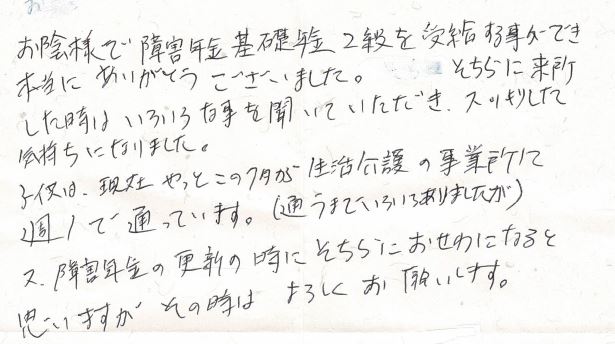 お陰様で障害年金基礎年金2級を受給する事ができ
本当にありがとうございました。 そちらに来所
した時はいろいろな事を聞いていただき、スッキリした
気持ちになりました。
子供は、現在 やっとこの7月から生活介護の事業所に
週1で通っています。(通うまでいろいろありましたが)
又、障害年金の更新の時にそちらにおせわになると
思いますが その時は よろしくお願いします。